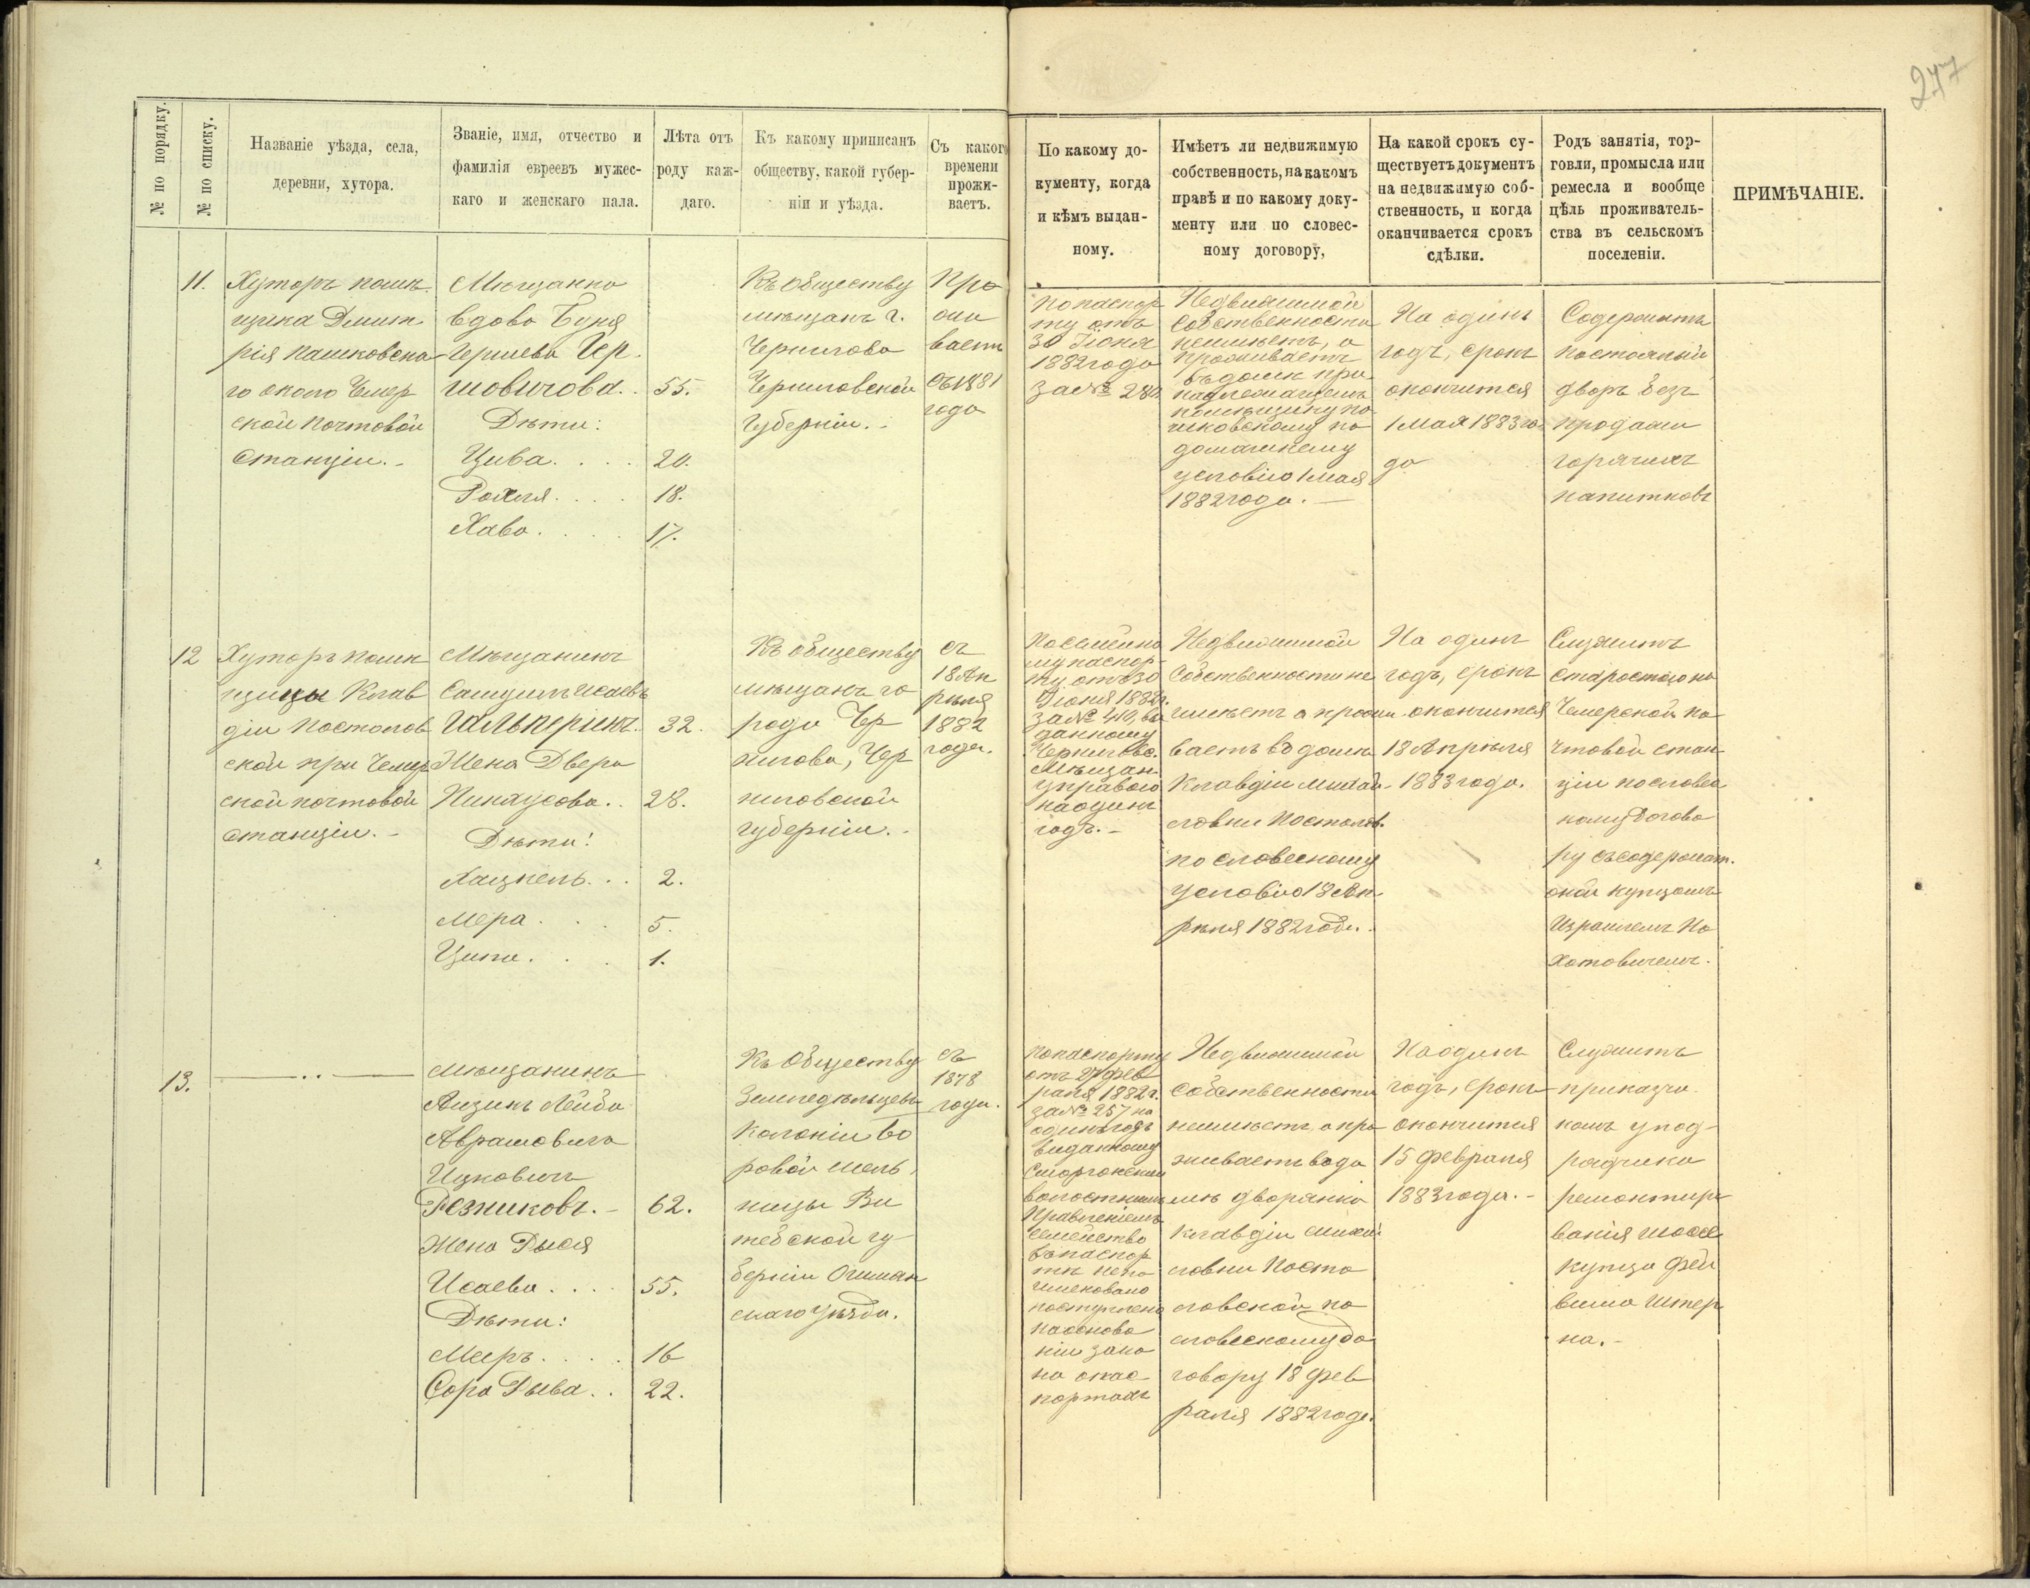 277
№ по порядку.
№ по списку.
Названіе уѣзда, села,
деревни, хутора.
Званіе, имя, отчество и
фамилія евреевъ мужес-
каго и женскаго пала.
Лѣта отъ
роду каж-
даго.
Къ какому приписанъ
обществу, какой губер-
ніи и уѣзда.
Съ каког
времени
прожи-
ваетъ.
По какому до-
кументу, когда
и кѣмъ выдан-
ному.
Имѣетъ ли недвижимую
собственность, на какомъ
правѣ и по какому доку-
менту или по словес-
ному договору,
На какой срокъ су-
ществуетъ документъ
на недвижимую соб-
ственность, и когда
оканчивается срокъ
сдѣлки.
Родъ занятія, тор-
говли, промысла или
ремесла и вообще
цѣль проживатель-
ства въ сельскомъ
поселеніи.
ПРИМѢЧАНІЕ.
11.
Хуторъ помѣ
щика Дмит
рія Пашковска
го около Чемер
ской почтовой
станціи. -
Мѣщанка
вдова Буня
Гершева Чер.
шовичова. . 55.
Дѣти:
Цива. . . . 20.
Рохля. . . . 18.
Хава. . . . 17.
Къ обществу
мѣщанъ г.
Чернигова
Черниговской
Губерніи. -
Про
жи
ваетъ
съ 1881
года
По паспор
ту отъ
30 Іюня
1882 года
за № 284
Недвижимой
собственности
неимѣетъ, а
проживаетъ
въ домѣ при
надлежащемъ
помѣщику Па
шковскому по
домашнему
условію 1 мая
1882 года. —
На одинъ
годъ, срокъ
окончится
1 Мая 1883 го
да
Содержитъ
постоялый
дворъ безъ
продажи
горячихъ
напитковъ
12
Хуторъ поме
щицы Клав
діи Постолов
ской при Чемер
ской почтовой
станціи. -
Мѣщанинъ
Самуилъ Исаевъ
Гальперинъ. 32.
Жена Двера
Пинхусова. . 28.
Дѣти:
Хацкель. . . 2.
Мера . . . 5.
Ципа. . . . 1.
Къ обществу
мѣщанъ го
рода Чер
нигова, Чер
ниговской
губерніи. -
съ
18 Ап
рѣля
1882
года.
По семейно
му паспор-
ту отъ 30
Іюня 1882 г.
за № 410, вы
данному
Чернигов.
Мѣщан.
управою
на одинъ
годъ. -
Недвижимой
собственности не
имѣетъ а прожи
ваетъ въ домѣ
Клавдіи Михай-
ловны Постолов.
по словесному
условію 18 Ап-
рѣля 1882 года.
На одинъ
годъ, срокъ
окончится
18 Апрѣля
1883 года.
Служитъ
старостою на
Чемерской по
чтовой стан-
ціи по словес
ному догово
ру съ содержат.
оной купцомъ
Израилемъ По
хотовичемъ.
13.
— .. —
Мѣщанинъ
Айзикъ Лейба
Абрамовичъ
Ицковичъ
Резниковъ. - 62.
Жена Рыся
Исаева. . . . 55.
Дѣти:
Мееръ. . . . 16
Сора Рыва. . 22.
Къ Обществу
Земледѣльцевъ
колоніи Во
ровой мель
ницы Ви
тебской гу-
берніи Ошмян
скаго уѣзда.
съ
1878
года.
По паспорту
отъ 27 Фев
раля 1882 г.
за № 257 на
одинъ годъ
выданному
Сморгонскимъ
волостнымъ
Правленіемъ
семейство
въ паспор
тѣ не по
именовано
поступлено
на основа
ніи зако
на о пас
портахъ
Недвижимой
собственности
неимѣетъ, а про
живаетъ въ до
мѣ дворянки
Клавдіи Михай
ловны Посто
ловской по
словесному до
говору 18 Фев
раля 1882 года.
На одинъ
годъ, срокъ
окончится
15 февраля
1883 года. -
Служитъ
приказчи
комъ у под-
рядчика
ремонтиро
ванія шоссе
купца Фей
виша Штер
на. -